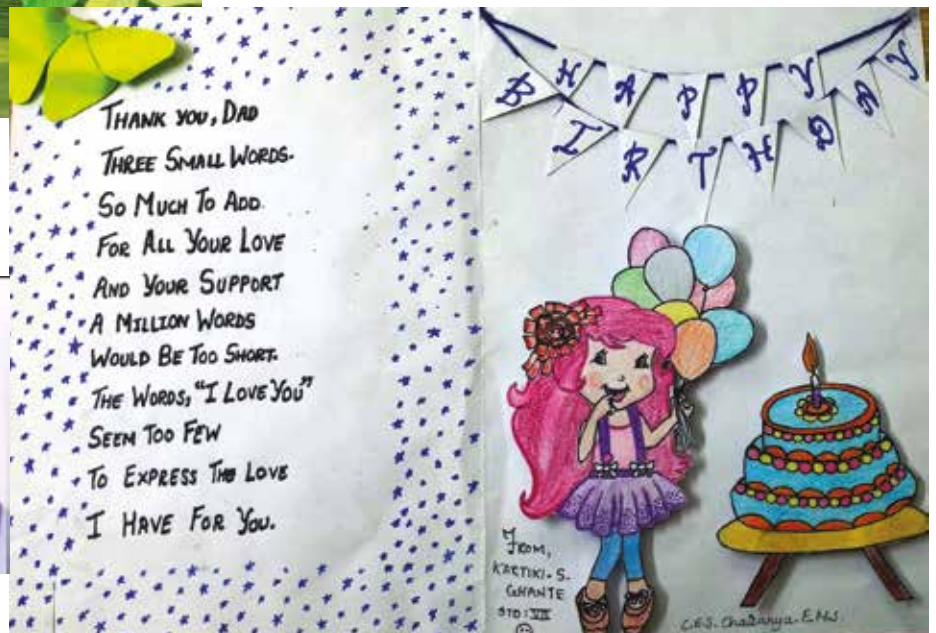 THANK YOU, DAD
THREE SMALL WORDS.
SO MUCH TO ADD.
FOR ALL YOUR LOVE
AND YOUR SUPPORT
A MILLION WORDS
WOULD BE TOO SHORT.
THE WORDS, "I LOVE YOU"
SEEM TOO FEW
TO EXPRESS THE LOVE
I HAVE FOR YOU.
HAPPY
BIRTHDAY
FROM,
KARTIKI. S.
GHANTE
STD: VII
C.E.S. Chaitanya. E.M.S.